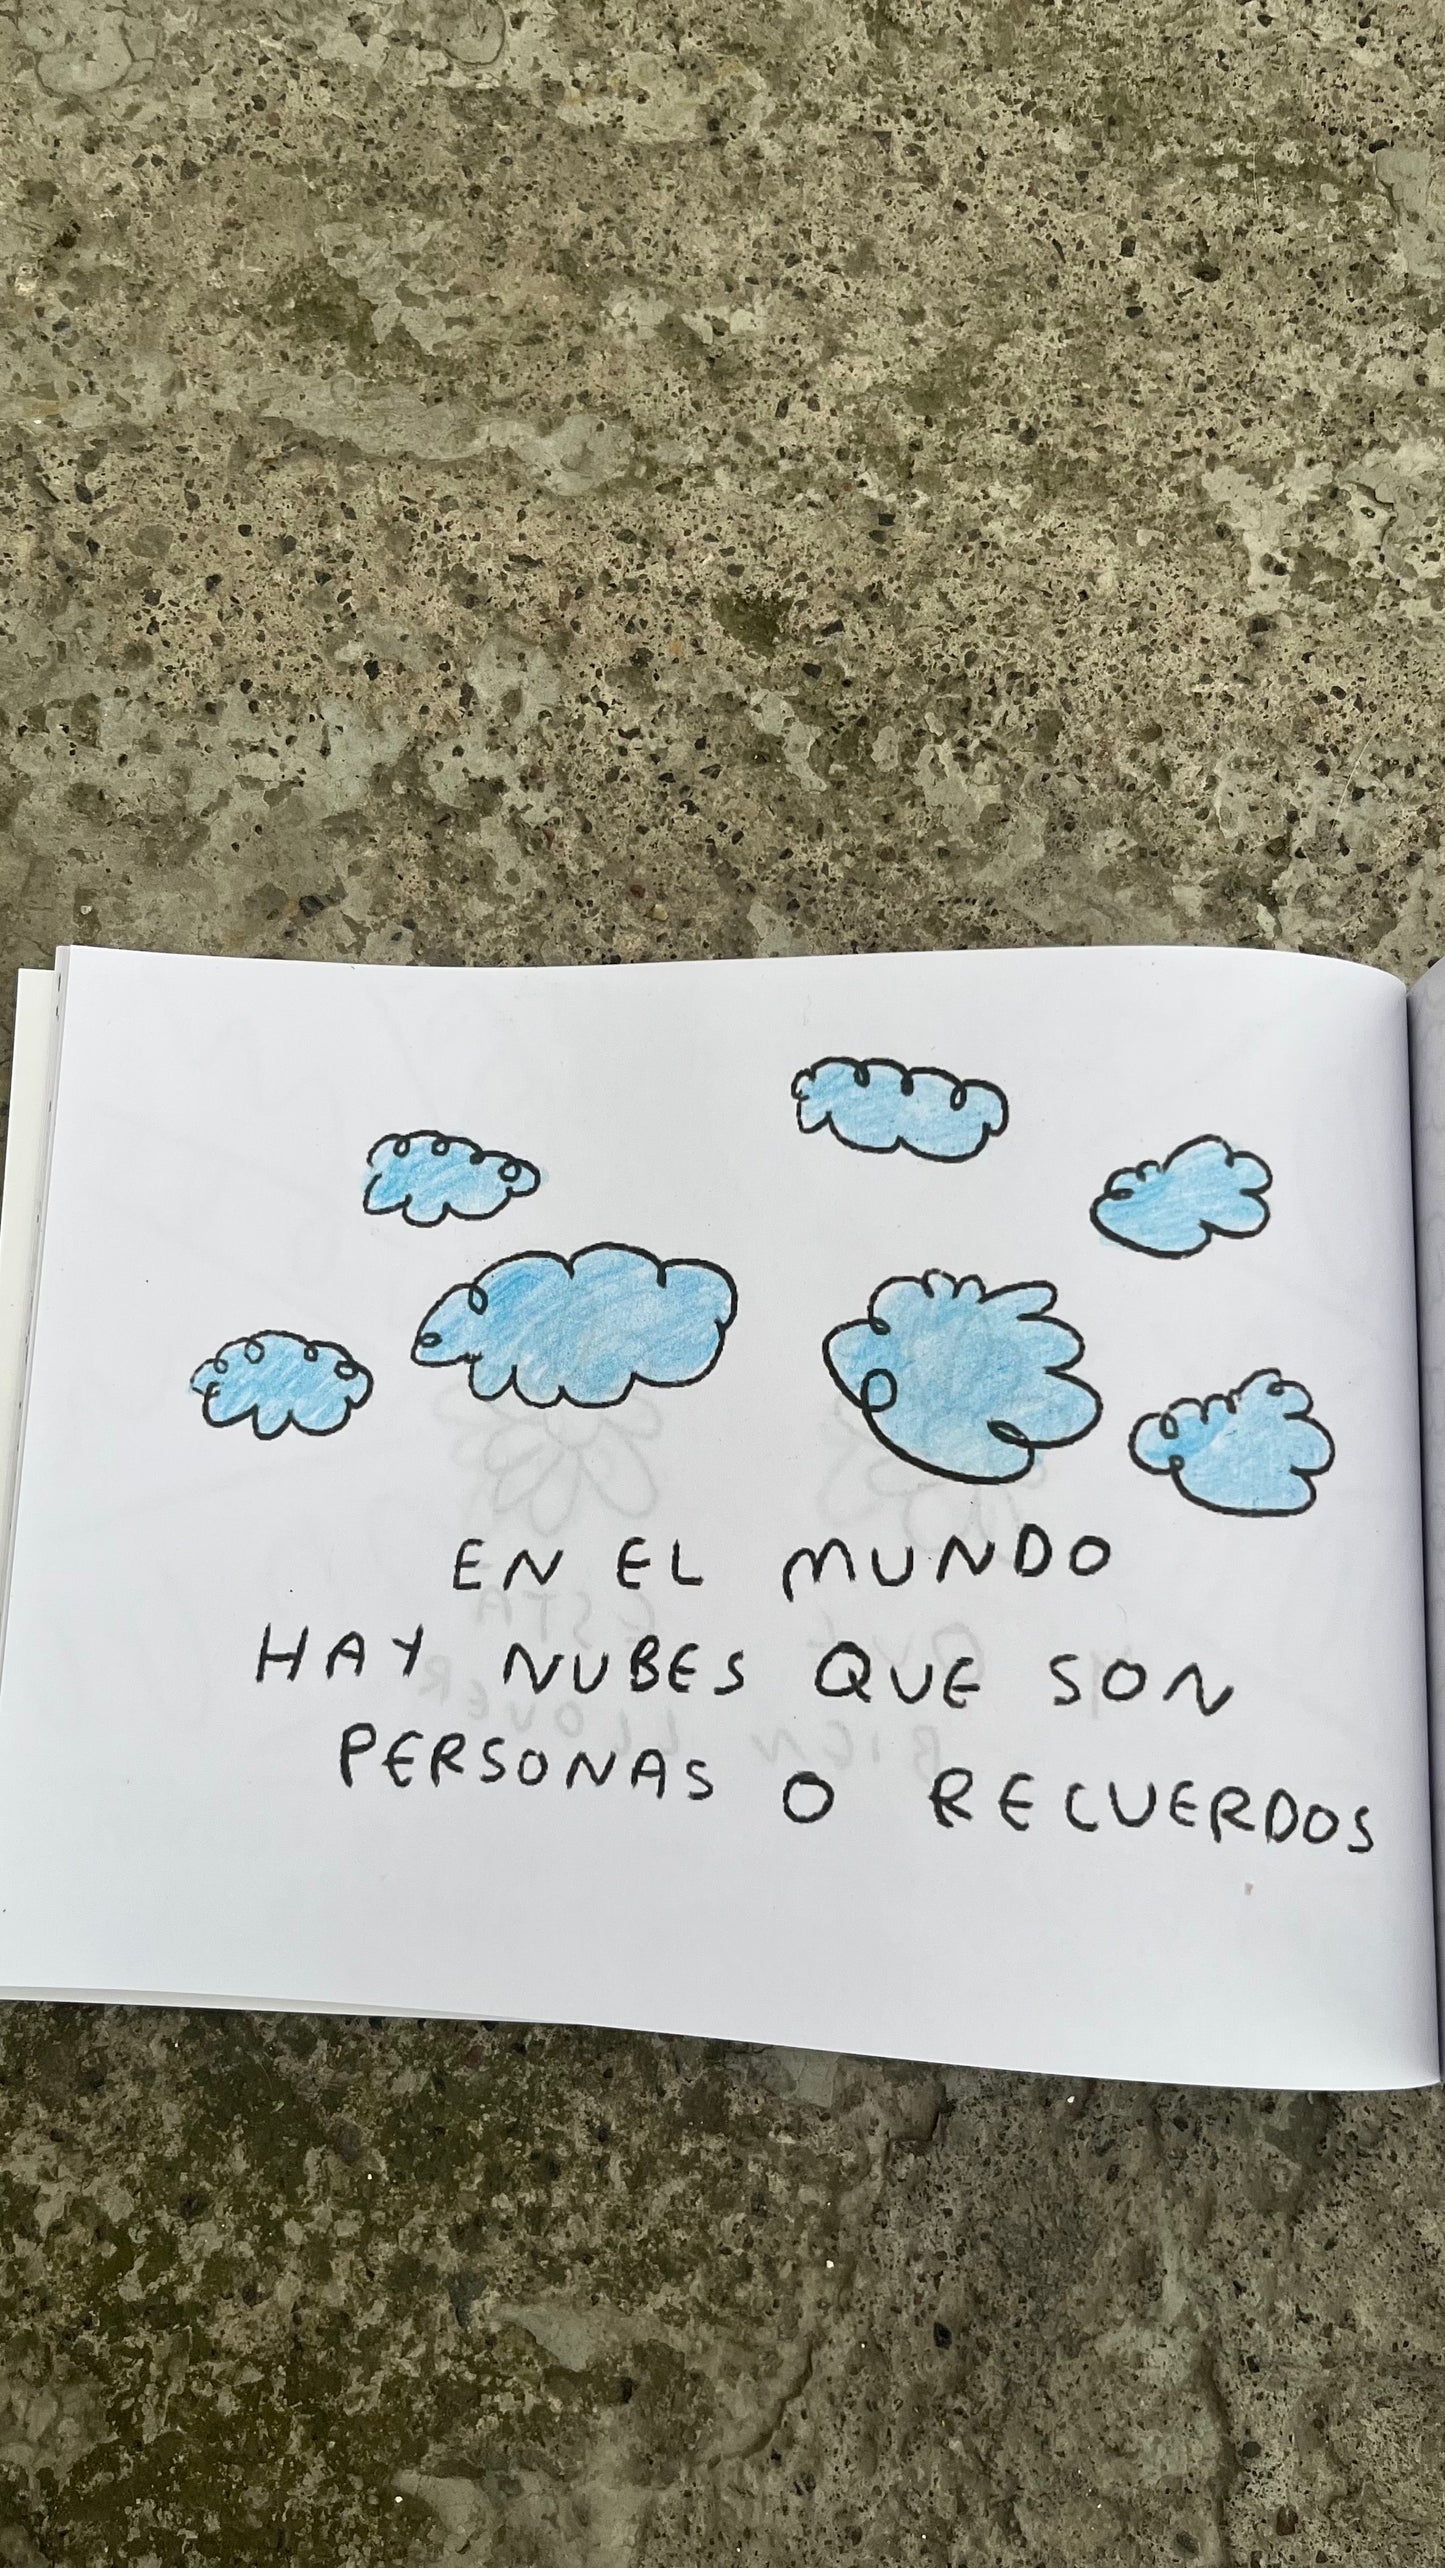 EN EL MUNDO
HAY NUBES QUE SON
PERSONAS O RECUERDOS